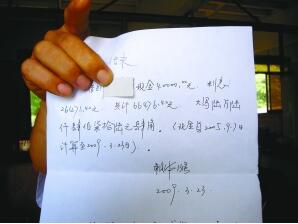 现金40000.00元 利息
26476.40元 共计66476.40元 大写陆万陆
仟肆佰柒拾陆元肆角。(现金自2005.9.7日
计算至2009.3.23日)。
2009.3.23.